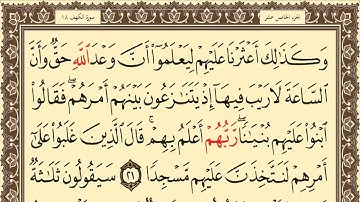 الجزء الخامس عشر سورة الكهف ١٨
وَكَذَٰلِكَ أَعْثَرْنَا عَلَيْهِمْ لِيَعْلَمُوٓا۟ أَنَّ وَعْدَ ٱللَّهِ حَقٌّ وَأَنَّ
ٱلسَّاعَةَ لَا رَيْبَ فِيهَآ إِذْ يَتَنَٰزَعُونَ بَيْنَهُمْ أَمْرَهُمْ ۖ فَقَالُوا۟
ٱبْنُوا۟ عَلَيْهِم بُنْيَٰنًا ۖ رَّبُّهُمْ أَعْلَمُ بِهِمْ ۚ قَالَ ٱلَّذِينَ غَلَبُوا۟ عَلَىٰٓ
أَمْرِهِمْ لَنَتَّخِذَنَّ عَلَيْهِم مَّسْجِدًا ٢١ سَيَقُولُونَ ثَلَٰثَةٌ